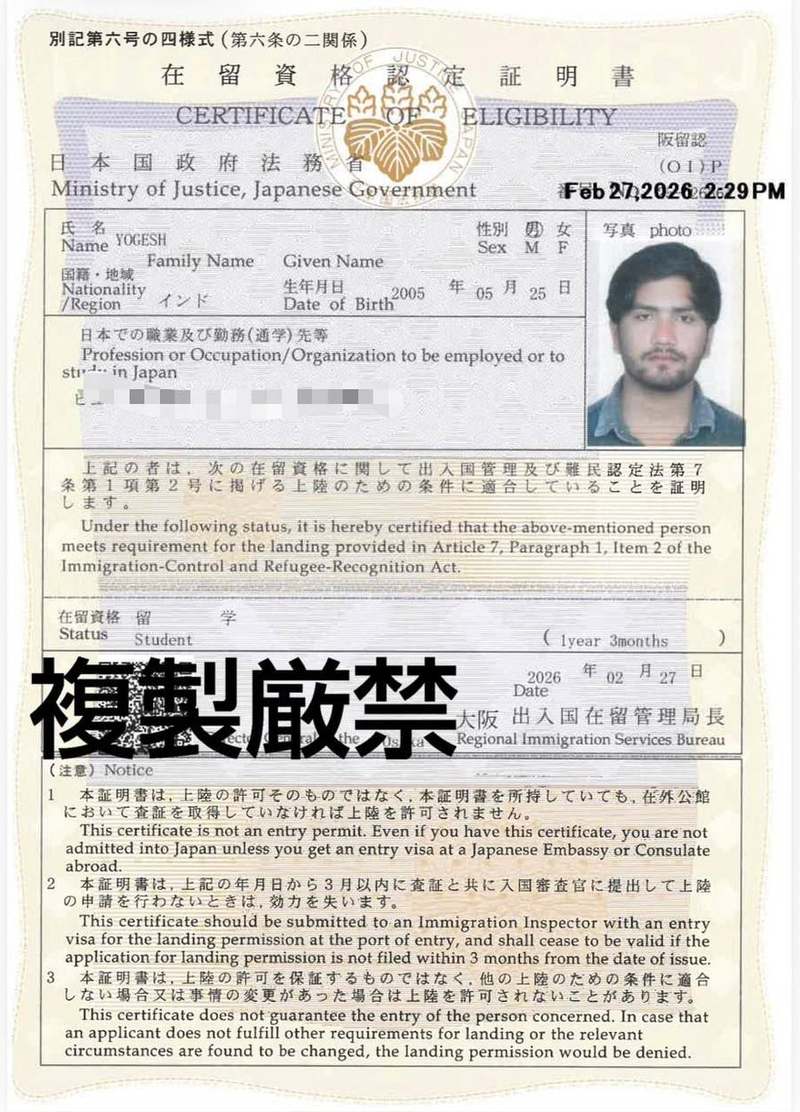 別記第六号の四様式(第六条の二関係)
在留資格認定証明書
CERTIFICATE OF ELIGIBILITY
MINISTRY OF JUSTICE JAPAN
阪留認
日本国政府法務省
(OI)P
Ministry of Justice, Japanese Government
Feb 27,2026 2:29 PM
氏名
Name YOGESH
Family Name Given Name
性別 男 女
Sex M F
写真 photo
国籍・地域
Nationality
/Region インド
生年月日
Date of Birth 2005 年 05 月 25 日
日本での職業及び勤務(通学)先等
Profession or Occupation/Organization to be employed or to
study in Japan
上記の者は、次の在留資格に関して出入国管理及び難民認定法第7
条第1項第2号に掲げる上陸のための条件に適合していることを証明
します。
Under the following status, it is hereby certified that the above-mentioned person
meets requirement for the landing provided in Article 7, Paragraph 1, Item 2 of the
Immigration-Control and Refugee-Recognition Act.
在留資格 留学
Status Student
( 1year 3months )
2026 年 02 月 27 日
Date
複製厳禁
大阪 出入国在留管理局長
the Osaka Regional Immigration Services Bureau
(注意) Notice
1 本証明書は,上陸の許可そのものではなく,本証明書を所持していても,在外公館
において査証を取得していなければ上陸を許可されません。
This certificate is not an entry permit. Even if you have this certificate, you are not
admitted into Japan unless you get an entry visa at a Japanese Embassy or Consulate
abroad.
2 本証明書は,上記の年月日から3月以内に査証と共に入国審査官に提出して上陸
の申請を行わないときは,効力を失います。
This certificate should be submitted to an Immigration Inspector with an entry
visa for the landing permission at the port of entry, and shall cease to be valid if the
application for landing permission is not filed within 3 months from the date of issue.
3 本証明書は,上陸の許可を保証するものではなく,他の上陸のための条件に適合
しない場合又は事情の変更があった場合は上陸を許可されないことがあります。
This certificate does not guarantee the entry of the person concerned. In case that
an applicant does not fulfill other requirements for landing or the relevant
circumstances are found to be changed, the landing permission would be denied.